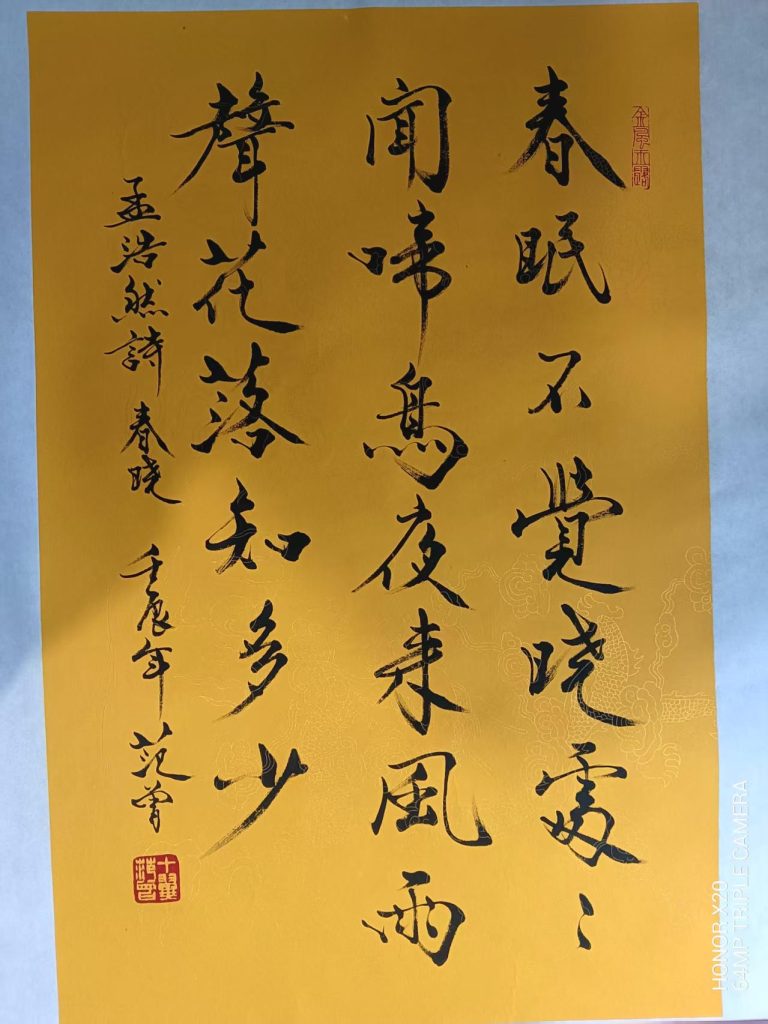 春眠不覺晓處〻
聞啼鳥夜来風雨
聲花落知多少
孟浩然詩 春晓 壬辰年 范曾
HONOR X20
64MP TRIPLE CAMERA